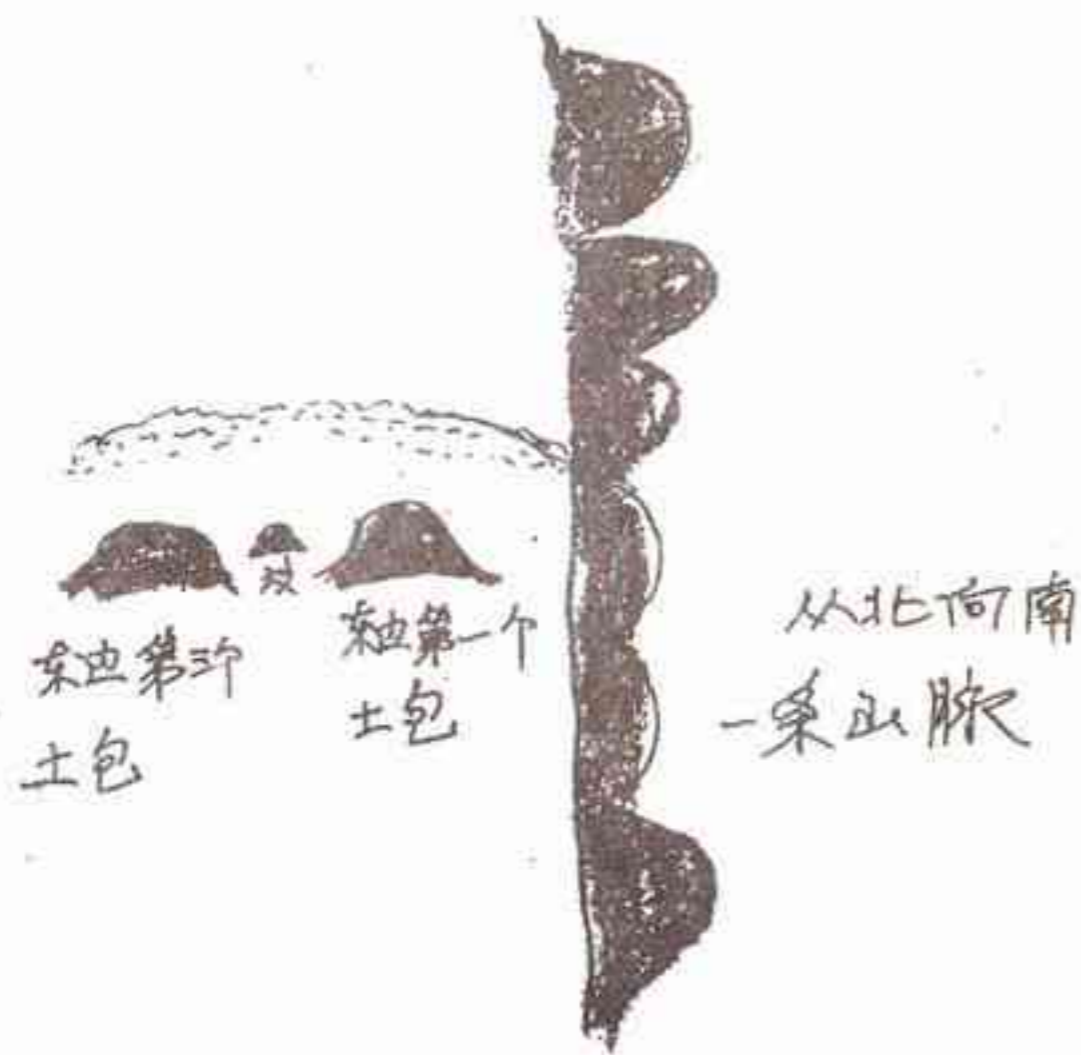 东边第三个
土包
坟
东边第一个
土包
从北向南
一条山脉